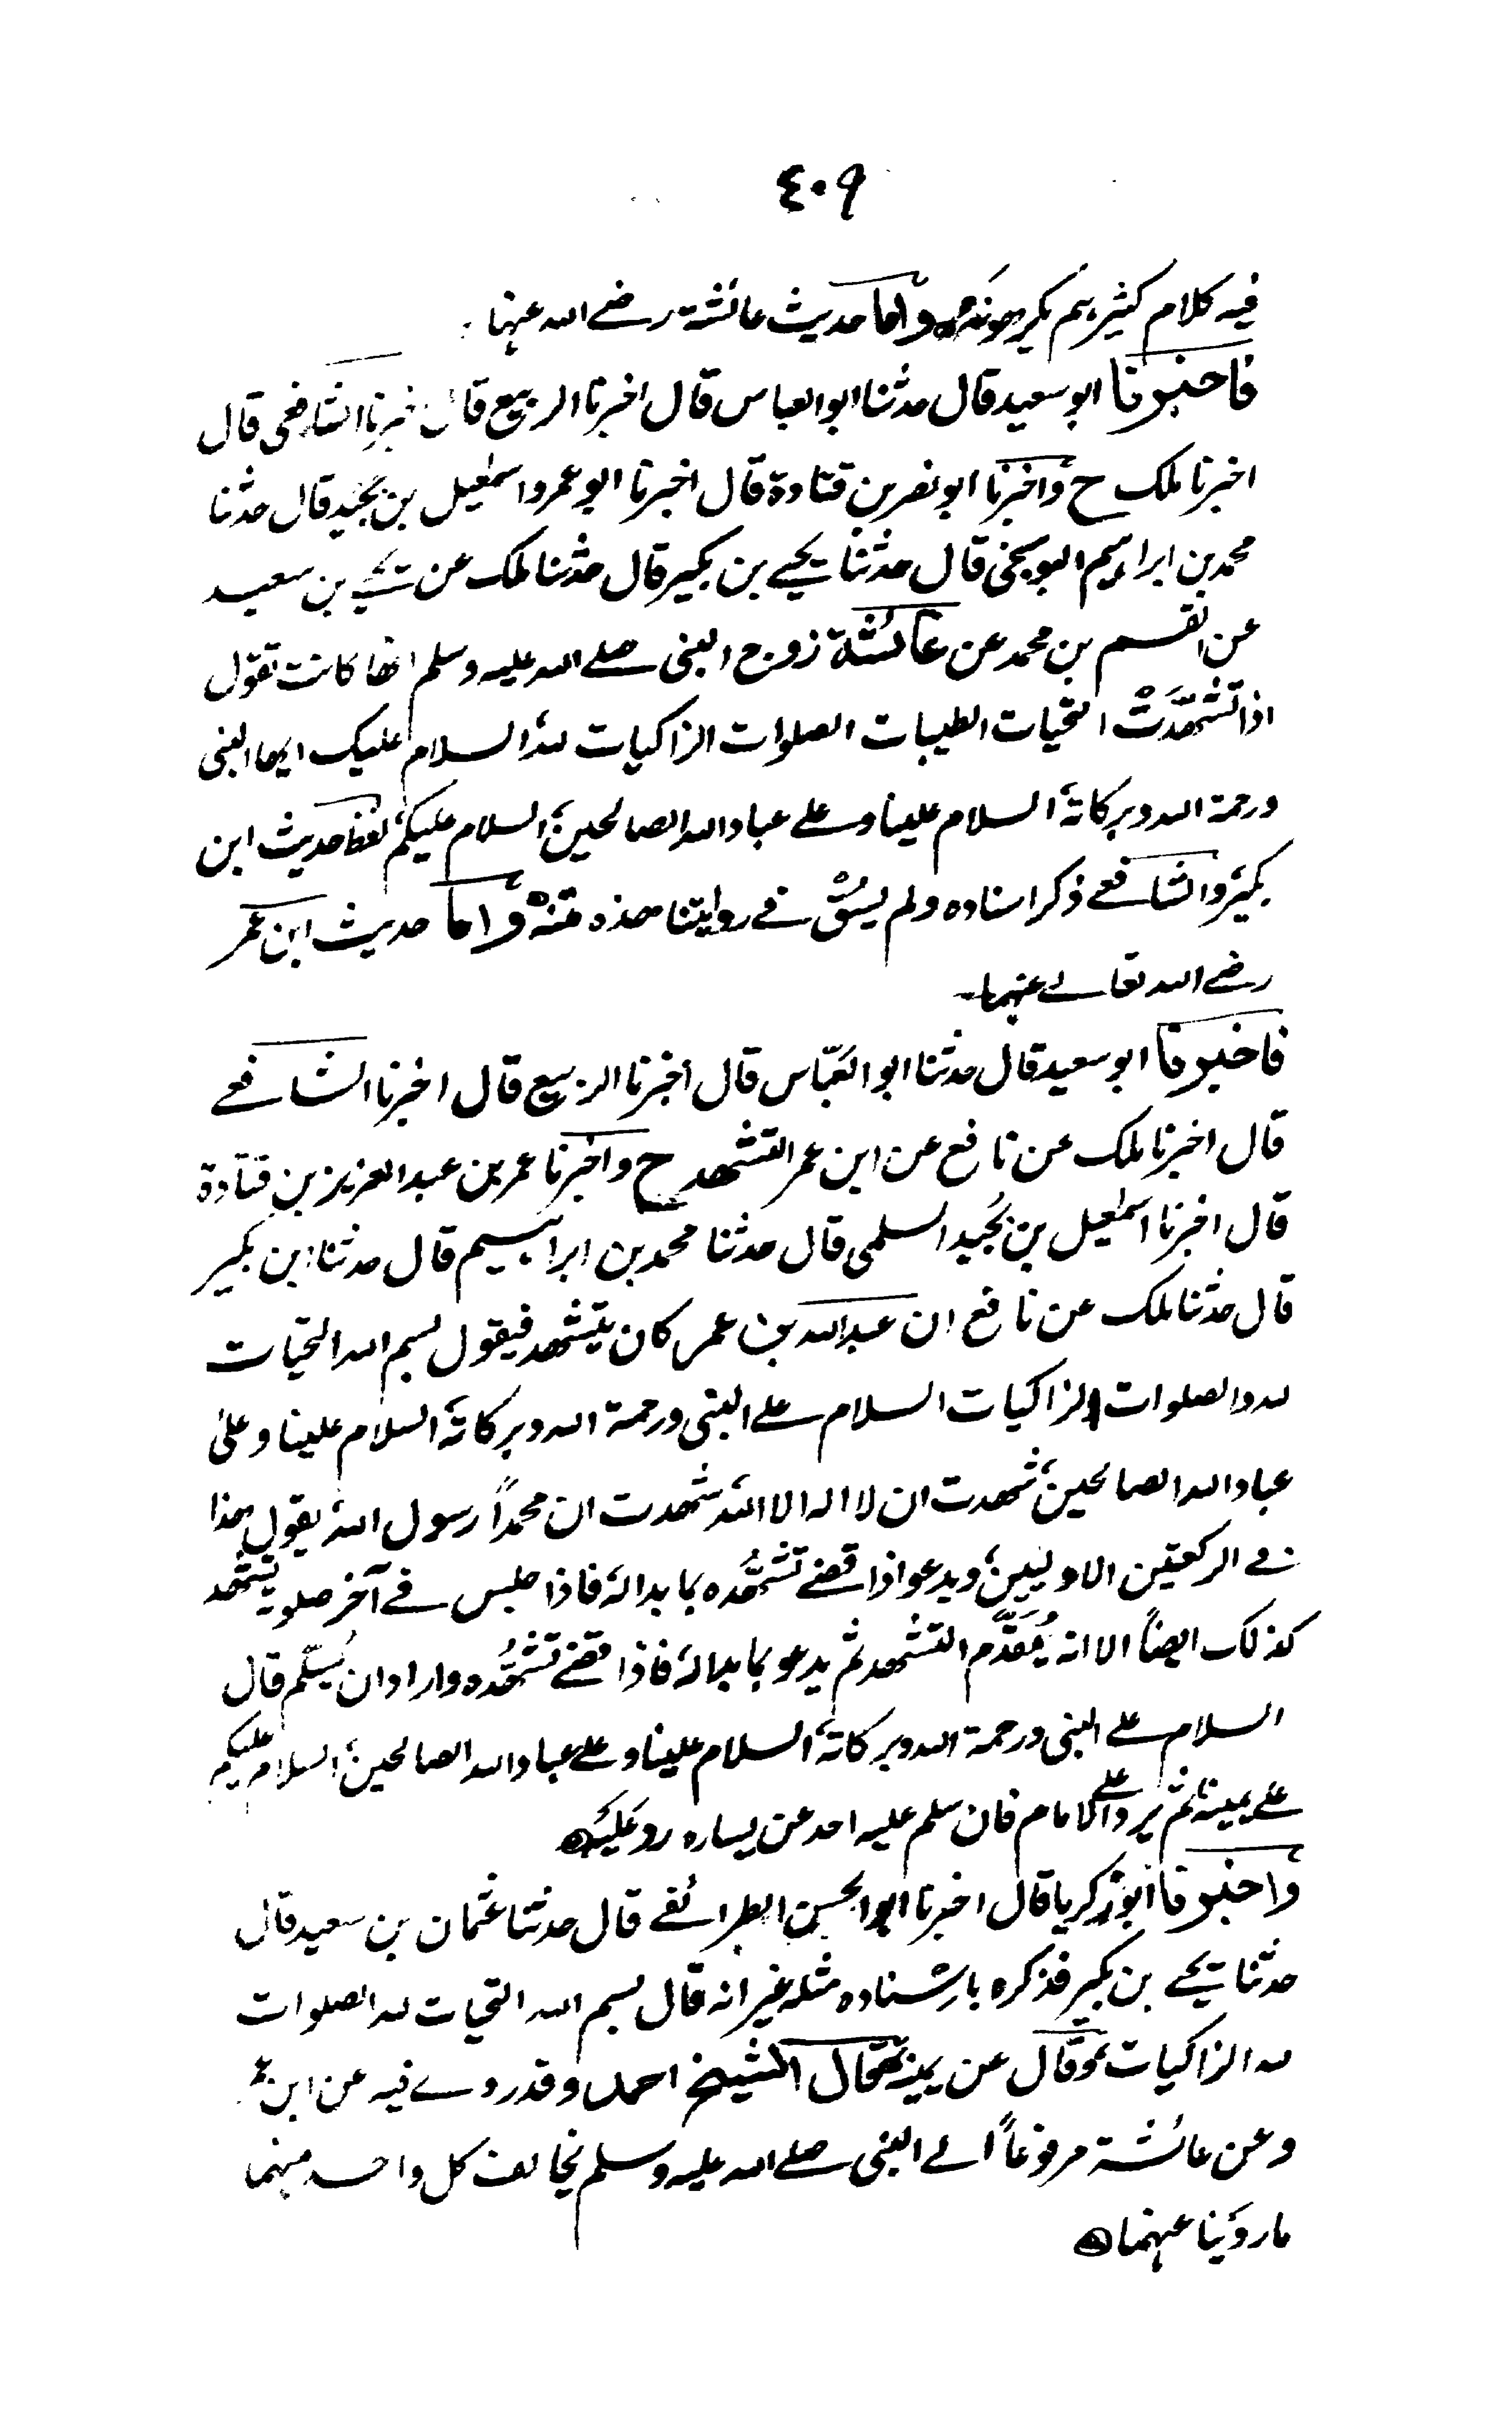 ٤٠٩
فيه كلام كثير لم يكرهونه وأما حديث عائشة رضے الله عنها
فاخبرنا ابو سعيد قال حدثنا ابو العباس قال اخبرنا الربيع قال اخبرنا الشافعی قال
اخبرنا ملك ح واخبرنا ابو نصر بن قتادة قال اخبرنا ابو عمرو اسمٰعيل بن نجيد قال حدثنا
محمد بن ابراہيم البوسنجی قال حدثنا يحيے بن بكير قال حدثنا ملك عن يحيے بن سعيد
عن القسم بن محمد عن عائشة زوج النبی صلے الله عليه وسلم انها كانت تقول
اذا تشهَّدَتْ التحيات الطيبات الصلوات الزاكيات لله السلام عليك ايها النبی
ورحمة الله وبركاته السلام علينا وعلے عباد الله الصالحين السلام عليكم لفظ حديث ابن
بكير والشافعے ذكر اسناده ولم يسُقْ فے روايتنا هذه متنه وأما حديث ابن عمر
رضے الله تعالے عنهما
فاخبرنا ابو سعيد قال حدثنا ابو العبّاس قال اخبرنا الربيع قال اخبرنا الشافعے
قال اخبرنا ملك عن نافع عن ابن عمر التشهد ح واخبرنا عمر بن عبد العزيز بن قتادة
قال اخبرنا اسمٰعيل بن نُجيد السلمی قال حدثنا محمد بن ابراہيم قال حدثنا ابن بكير
قال حدثنا ملك عن نافع ان عبد الله بن عمر كان يتشهد فيقول بسم الله التحيات
لله والصلوات الزاكيات السلام علے النبی ورحمة الله وبركاته السلام علينا وعلیٰ
عباد الله الصالحين شهدت ان لا اله الا الله شهدت ان محمداً رسول الله يقول هذا
فے الركعتين الاوليين ويدعو اذا قضے تشهُّده بما بدا له فاذا جلس فے آخر صلوته تشهد
كذلك ايضاً الا انه يُقَدِّم التشهد ثم يدعو بما بدا له فاذا قضے تشهُّده واراد ان يُسلّم قال
السلام علے النبی ورحمة الله وبركاته السلام علينا وعلے عباد الله الصالحين السلام عليكم
علے يمينه ثم يرد علے الامام فان سلم عليه احد عن يساره رد عليه
واخبرنا ابو زكريا قال اخبرنا ابو الحسن الطرائفے قال حدثنا عثمان بن سعيد قال
حدثنا يحيے بن بكير فذكره باسناده مثله غير انه قال بسم الله التحيات لله الصلوات
لله الزاكيات لله وقال عن يمينه قال الشيخ احمد وقد روے فيه عن ابن عمر
وعن عائشة مرفوعاً الے النبی صلے الله عليه وسلم يخالف كل واحد منهما
ما روينا عنهما